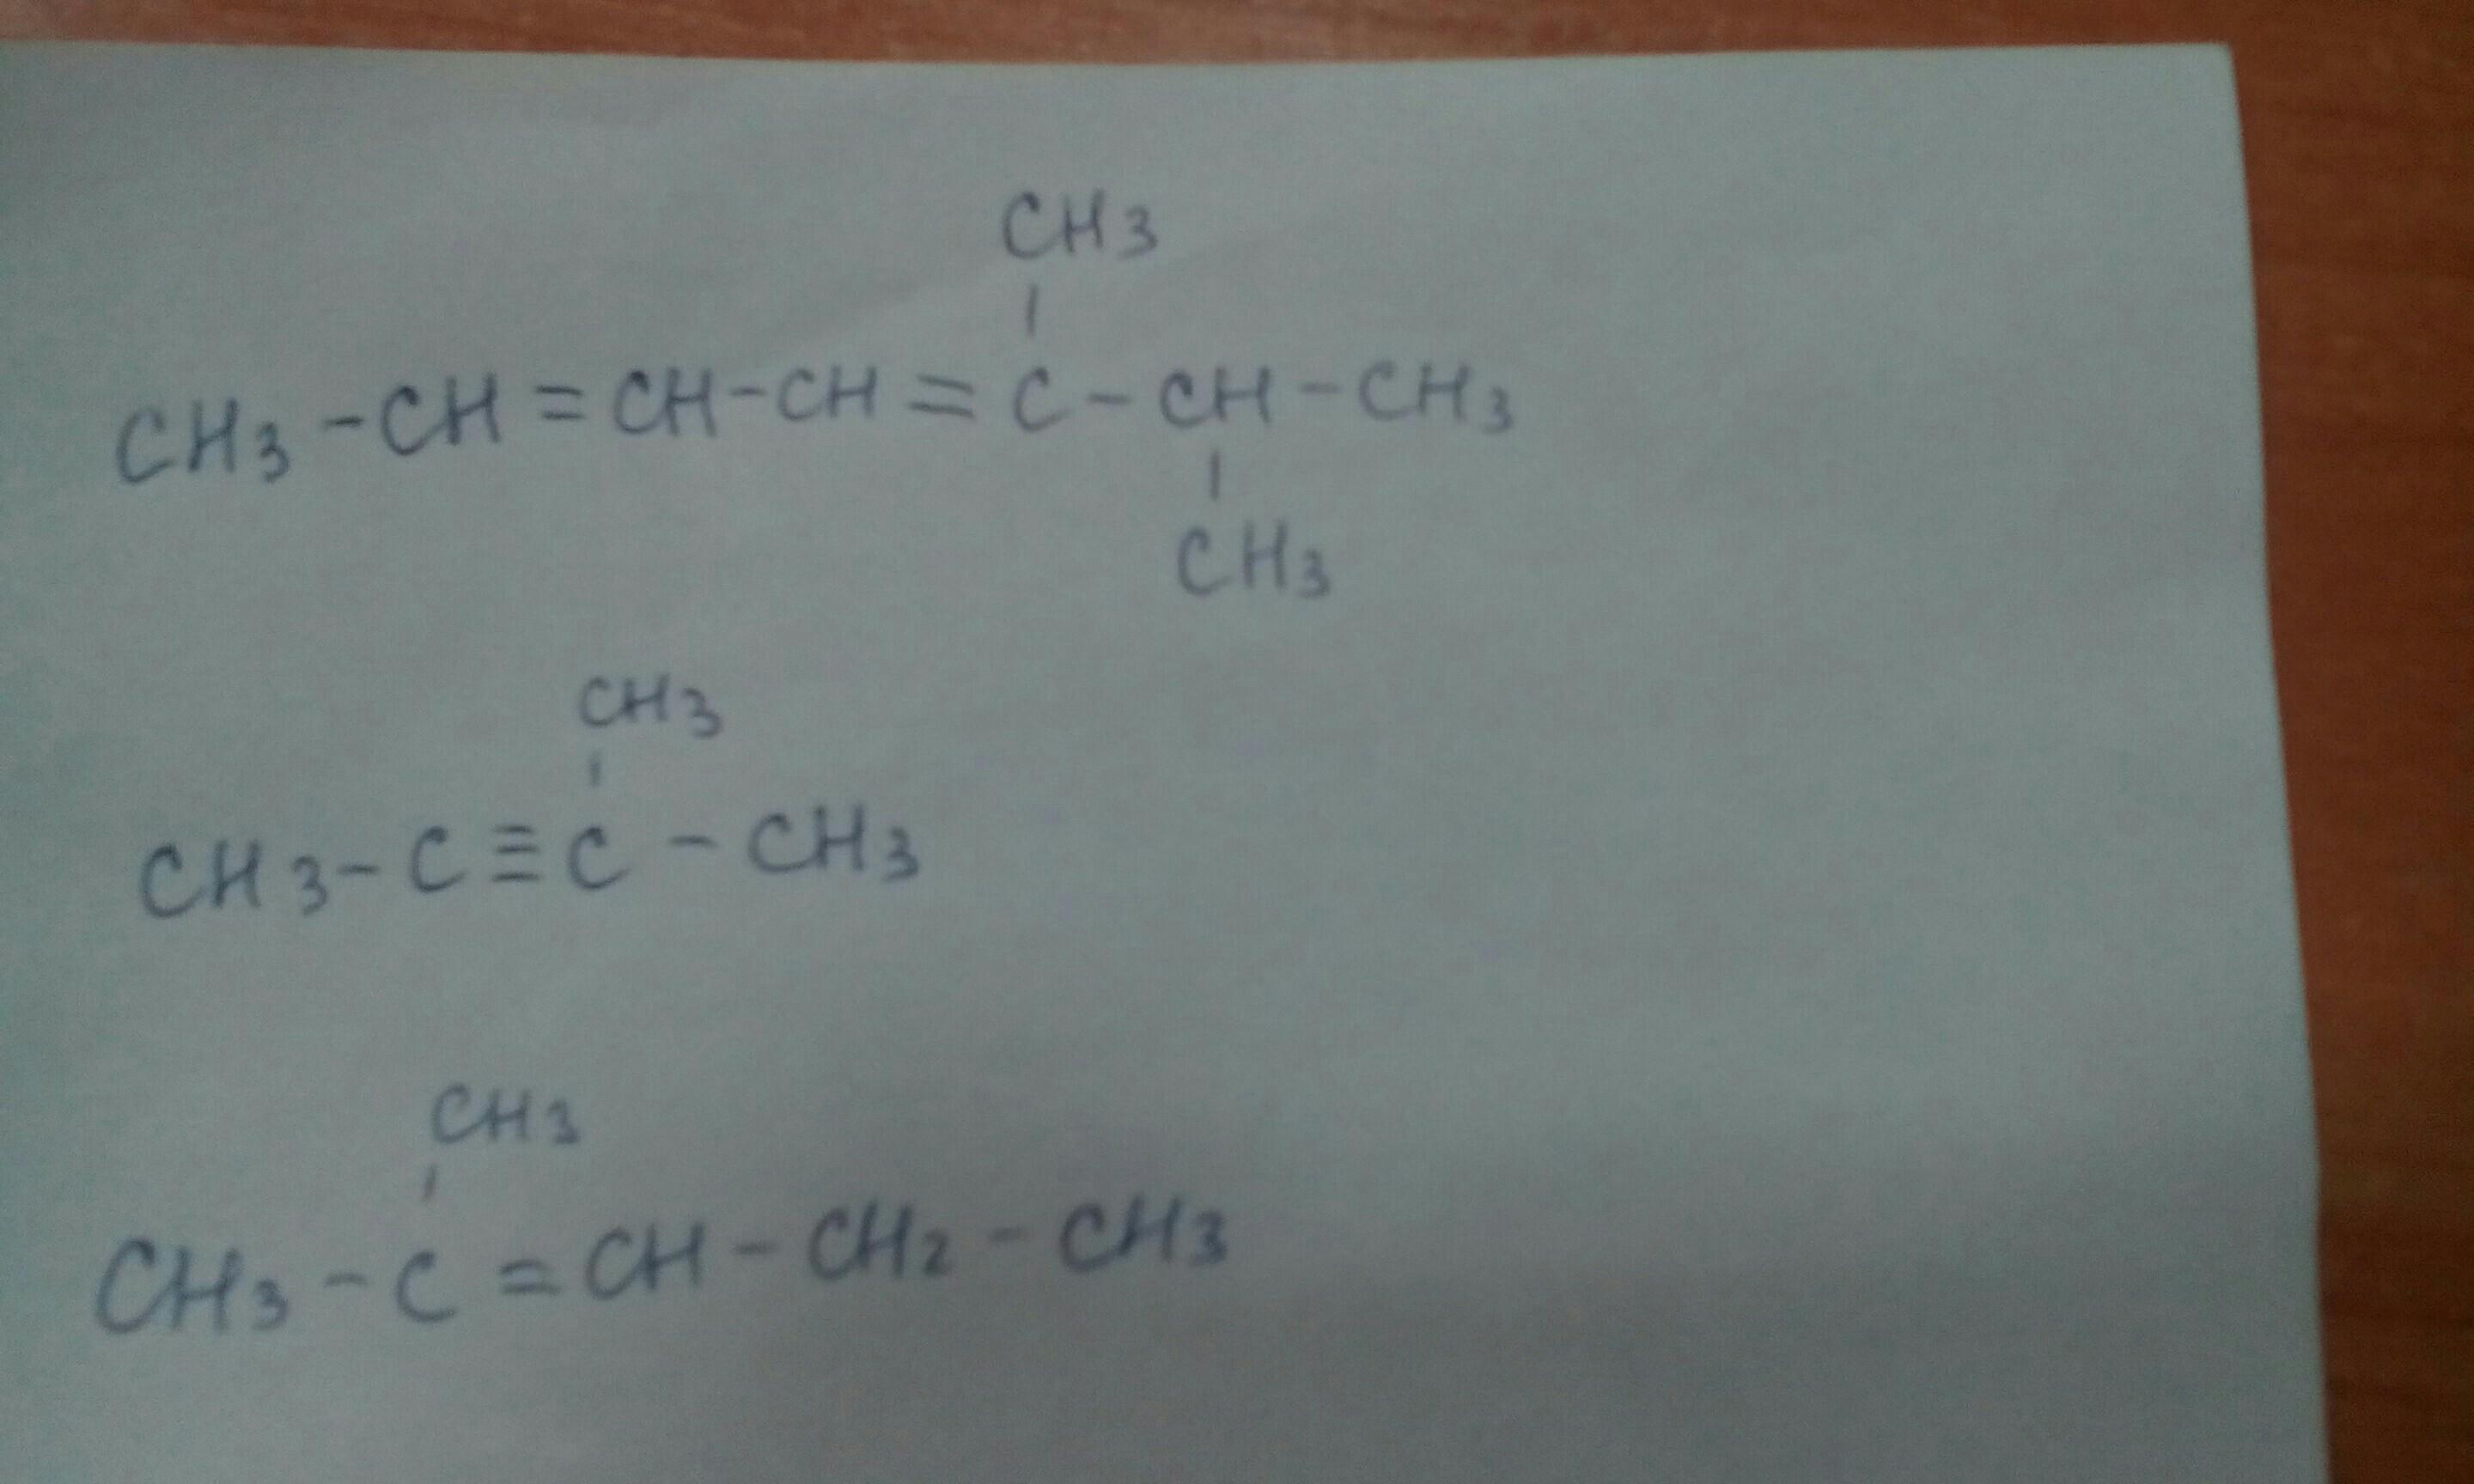 CH3
CH3-CH=CH-CH=C-CH-CH3
CH3
CH3
CH3-C≡C-CH3
CH3
CH3-C=CH-CH2-CH3